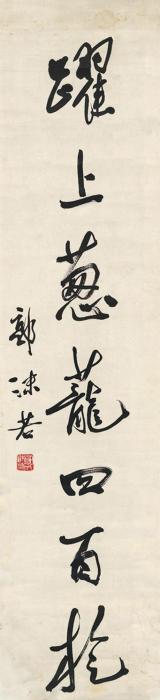 躍上葱蘢四百旋
郭沫若